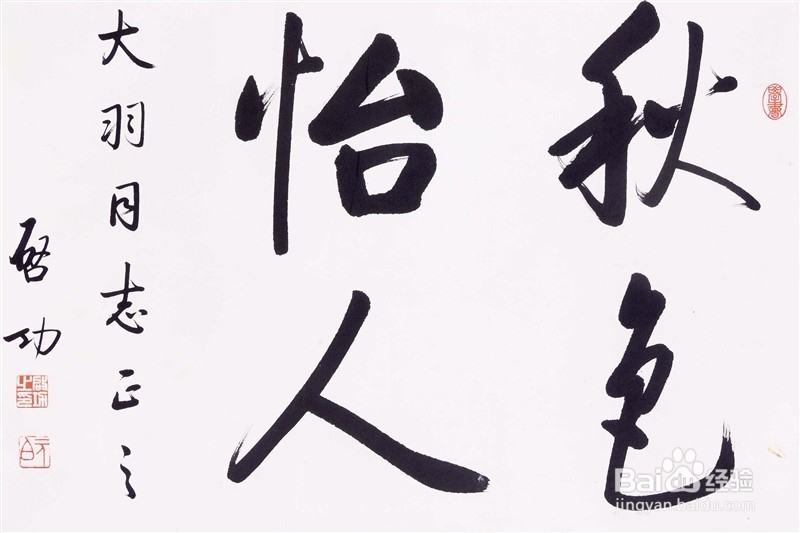 秋色
怡人
大羽同志正之
启功
Baidu经验
jingyan.baidu.com